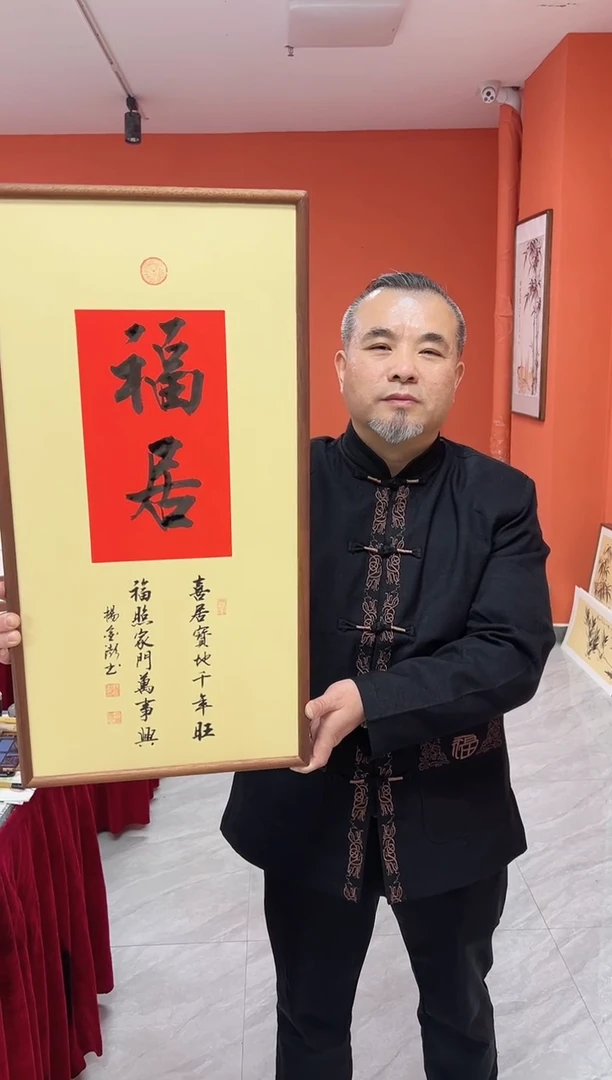 福居
喜居寶地千年旺
福照家門萬事興
楊金澎书
福